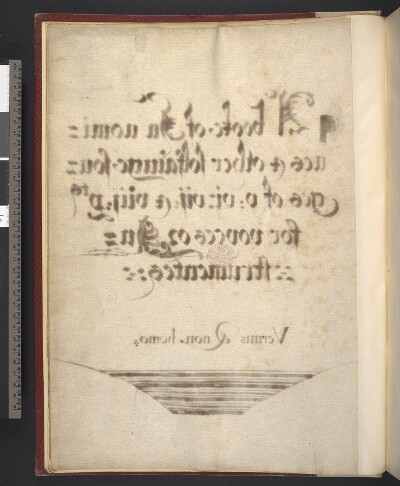 A booke of In nomi=
nes & other solfainge son=
ges of v: vi: vij: & viij: p^tes
for voyces or In=
strumentes
Vermis & non homo,